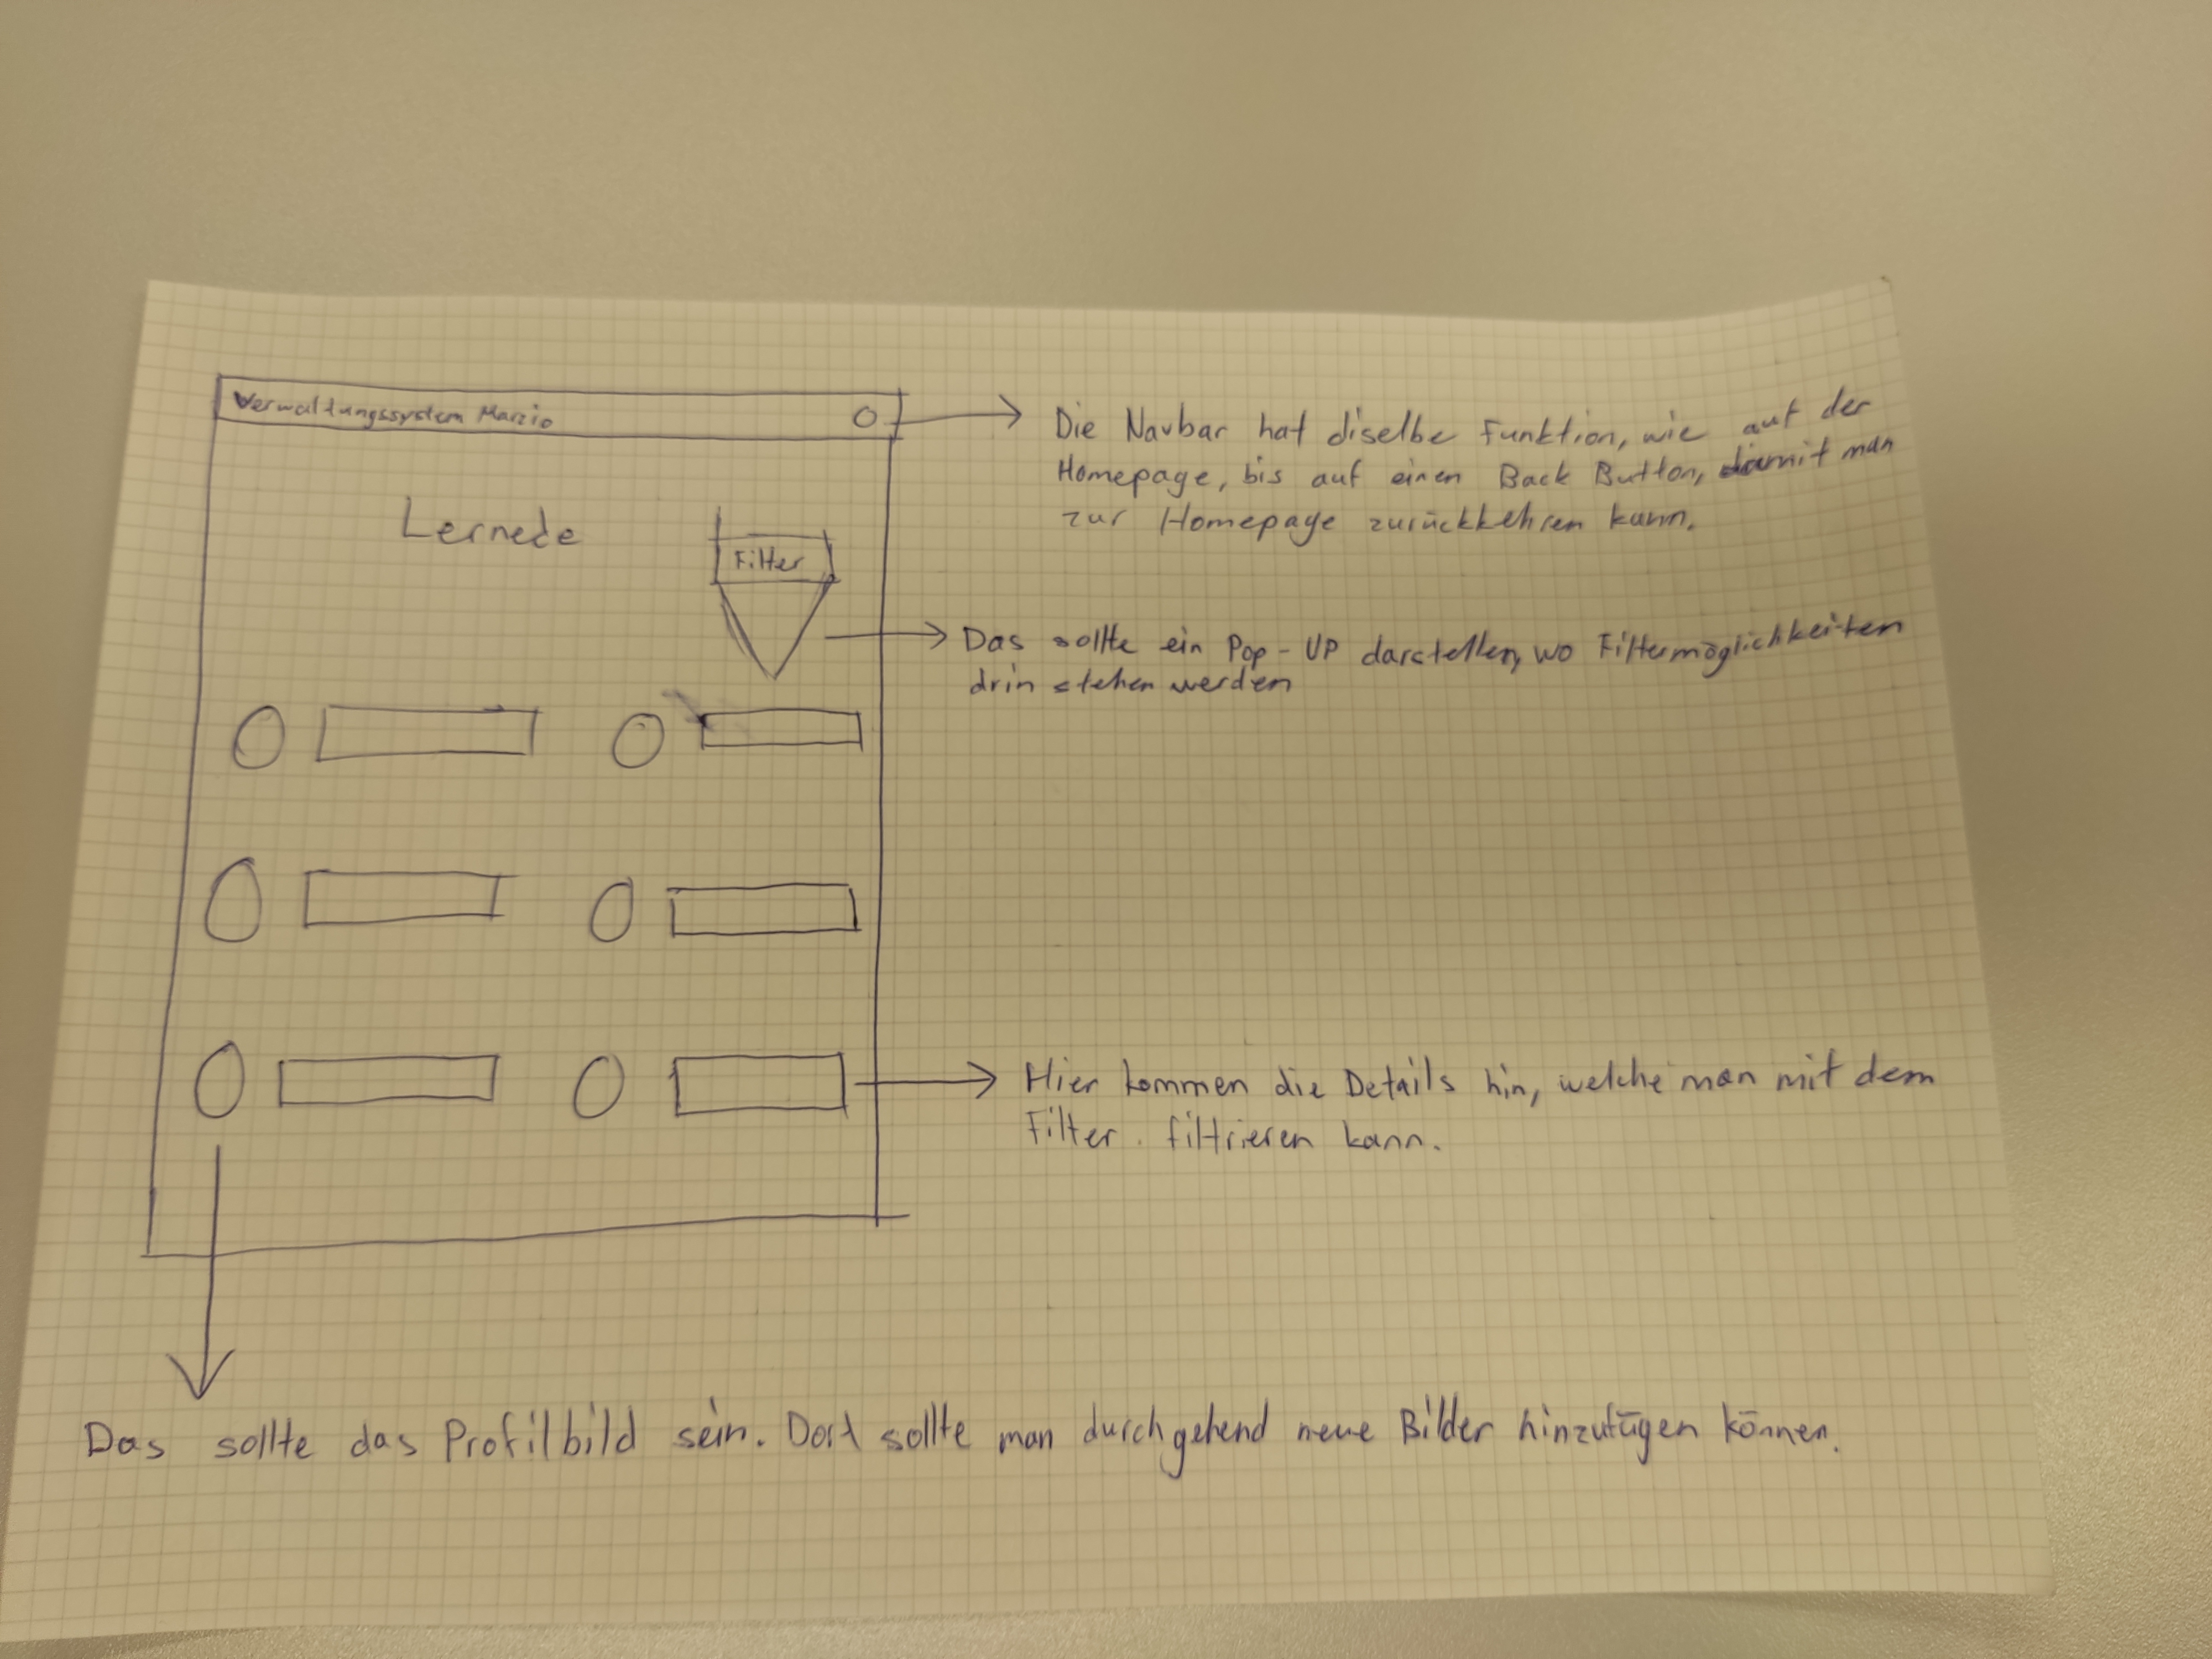 Verwaltungssystem Marzio
Die Navbar hat diselbe Funktion, wie auf der
Homepage, bis auf einen Back Button, damit man
zur Homepage zurückkehren kann.
Lernede
Filter
Das sollte ein Pop-UP darstellen, wo Filtermöglichkeiten
drin stehen werden
Hier kommen die Details hin, welche man mit dem
Filter filtrieren kann.
Das sollte das Profilbild sein. Dort sollte man durchgehend neue Bilder hinzufügen können.